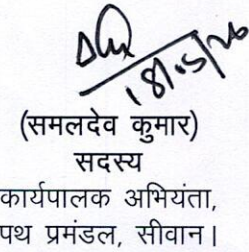 18/05/26
(समलदेव कुमार)
सदस्य
कार्यपालक अभियंता,
पथ प्रमंडल, सीवान।